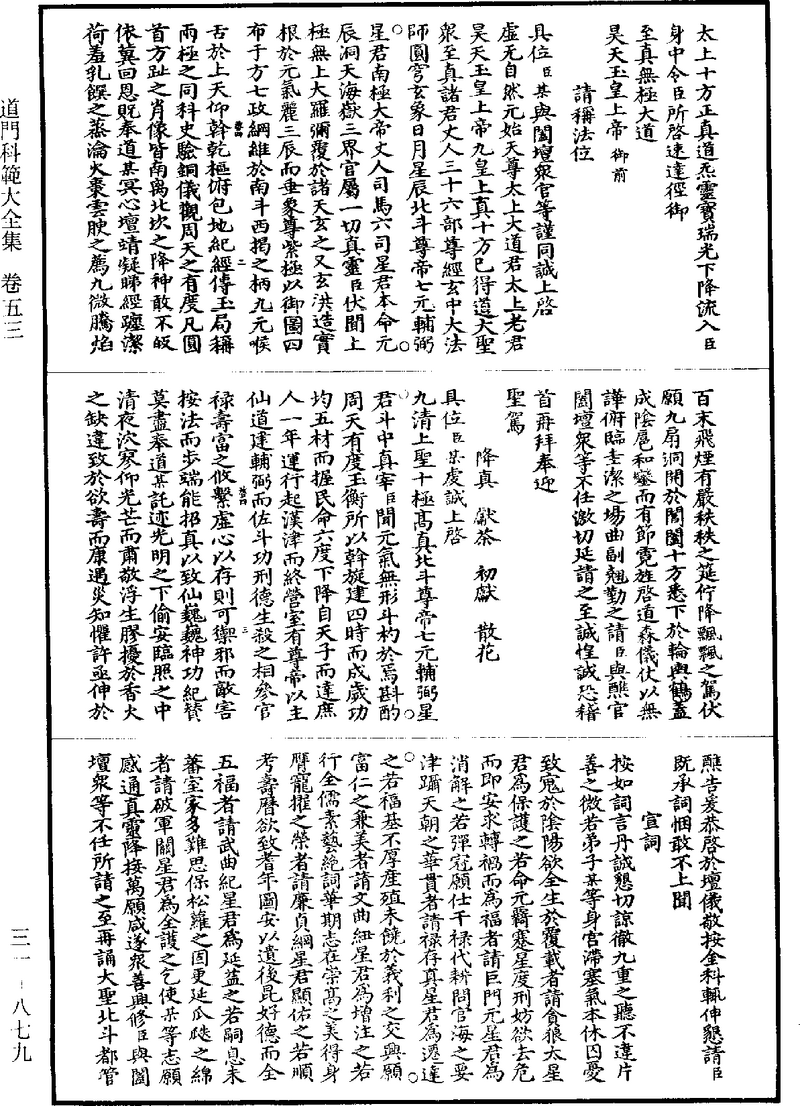 太上十方正真道炁靈寶瑞光下降流入臣
身中令臣所啓速達徑御
至真無極大道
昊天玉皇上帝 御前
請稱法位
具位臣某與闔壇衆官等謹同誠上啓
虛无自然元始天尊太上大道君太上老君
昊天玉皇上帝九皇上真十方已得道大聖
衆至真諸君丈人三十六部尊經玄中大法
師圓穹玄象日月星辰北斗尊帝七元輔弼
星君南極大帝丈人司馬六司星君本命元
辰洞天海嶽三界官屬一切真靈臣伏聞上
極無上大羅彌覆於諸天玄之又玄洪造實
根於元氣麗三辰而垂象尊紫極以御圖四
布于方七政綱維於南斗西揭之柄九元喉
舌於上天仰幹乾樞俯包地紀經傳玉局稱
兩極之同科史驗銅儀觀周天之有度凡圓
首方趾之肖像皆南离北坎之降神敢不皈
依冀回恩貺奉道某冥心壇靖凝睇經躔潔
荷羞乳饌之蒸淪火棗雲腴之薦九微騰焰
百末飛煙有嚴秩秩之筵佇降飄飄之駕伏
願九扃洞開於閶闔十方悉下於輪輿鶴蓋
成陰扈和鑾而有節霓旌啓道森儀仗以無
譁俯臨圭潔之場曲副翹勤之請臣與醮官
闔壇衆等不任激切延請之至誠惶誠恐稽
首再拜奉迎
聖駕
降真 獻茶 初獻 散花
具位臣某虔誠上啓
九清上聖十極高真北斗尊帝七元輔弼星
君斗中真宰臣聞元氣無形斗杓於焉斟酌
周天有度玉衡所以幹旋建四時而成歲功
均五材而握民命六度下降自天子而達庶
人一年運行起漢津而終營室有尊帝以主
仙道建輔弼而佐斗功刑德生殺之相參官
祿壽富之攸繫虛心以存則可禦邪而敵害
按法而步端能招真以致仙巍巍神功紀贊
莫盡奉道某託迹光明之下偷安臨照之中
清夜泬寥仰光芒而肅敬浮生膠擾於香火
之缺違致於欲壽而康遇災知懼許亟伸於
醮告爰恭啓於壇儀敬按金科輒伸懇請臣
既承詞悃敢不上聞
宣詞
按如詞言丹誠懇切諒徹九重之聽不違片
善之微若弟子某等身宮滯塞氣本休囚憂
致寇於陰陽欲全生於覆載者請貪狼太星
君爲保護之若命元臲蹇星度刑妨欲去危
而即安求轉禍而爲福者請巨門元星君爲
消解之若彈冠願仕干祿代耕問官海之要
津躡天朝之華貫者請祿存真星君爲遷達
之若福基不厚産殖未饒於義利之交興願
富仁之兼美者請文曲紐星君爲增注之若
行全儒素藝絶詞華期志在崇高之美得身
膺寵擢之榮者請廉貞綱星君顯佑之若順
考壽曆欲致耆年圖安以遺後昆好德而全
五福者請武曲紀星君爲延益之若嗣息未
蕃室家多難思保松蘿之固更延瓜瓞之綿
者請破軍關星君爲全護之乞使某等志願
感通真靈降接萬願咸遂衆善興修臣與闔
壇衆等不任所請之至再誦大聖北斗都管
道門科範大全集 卷五三
三一－八七九